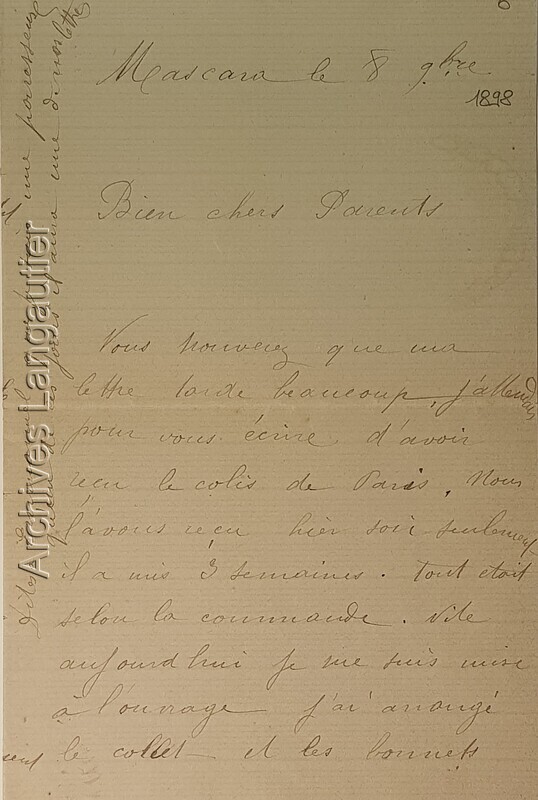 Mascara le 8 9bre
1898
Bien chers Parents
Vous trouverez que ma
lettre tarde beaucoup, j'attendais
pour vous écrire d'avoir
reçu le colis de Paris. Nous
l'avons reçu hier soir seulement
il a mis 3 semaines. Tout était
selon la commande. Vite
aujourd'hui je me suis mise
à l'ouvrage j'ai arrangé
le collet et les bonnets
une paresseuse
jours aura une de mes lettre
Archives Langautier